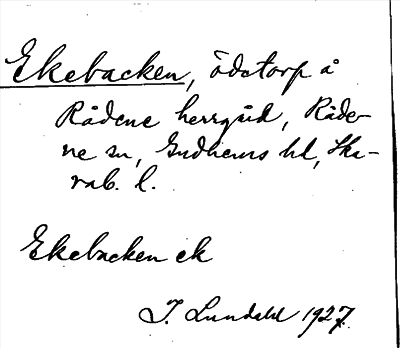 Ekebacken, ödetorp å
Rådene herrgård, Råde-
ne sn, Gudhems hd, Ska-
rab. l.
Ekebacken ek
I. Lundahl 1927.